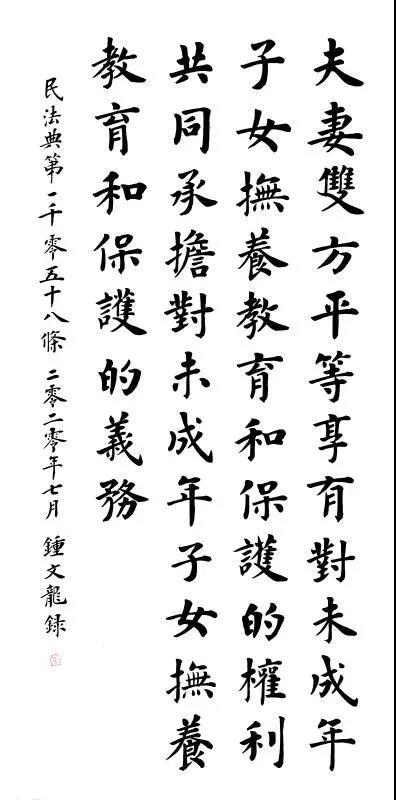 夫妻雙方平等享有對未成年
子女撫養教育和保護的權利
共同承擔對未成年子女撫養
教育和保護的義務
民法典第一千零五十八條 二零二零年七月 鍾文龍録